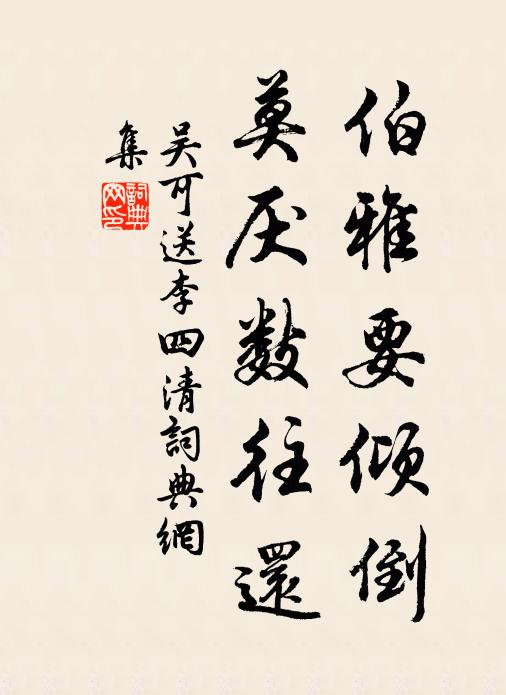 伯雅要倾倒
莫厌数往還
吴可送李四清詞典網
集
詞典網印